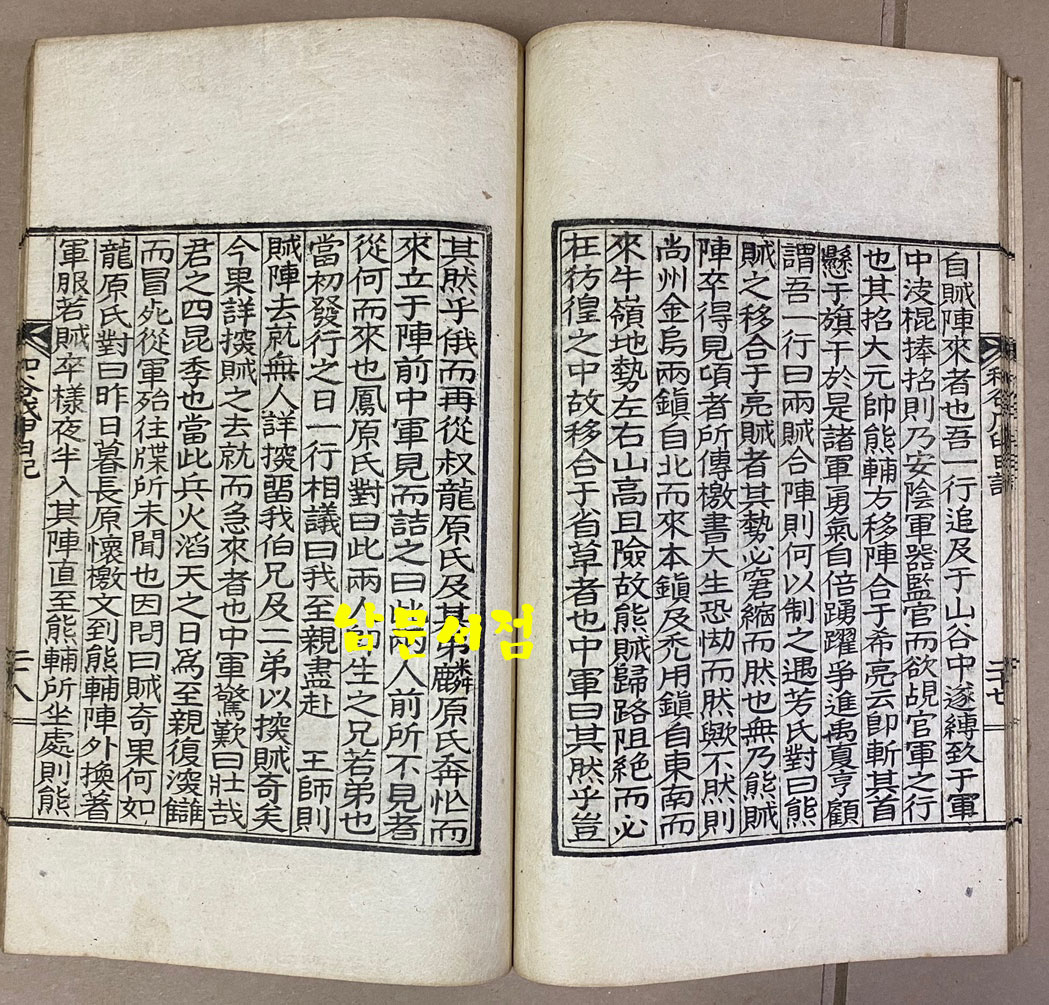 自賊陣來者也吾一行追及于山谷中遂縛致于軍
中淩棍捧招則乃安陰軍器監官而欲覘官軍之行
也其招大元帥熊輔方移陣合于希亮云卽斬其首
懸于旗干於是諸軍勇氣自倍踴躍爭進禹夏亨顧
謂吾一行曰兩賊合陣則何以制之遇芳氏對曰熊
賊之移合于亮賊者其勢必窘縮而然也無乃熊賊
陣卒得見頃者所傳檄書大生恐怯而然歟不然則
尙州金烏兩鎭自北而來本鎭及禿用鎭自東南而
來牛嶺地勢左右山高且險故熊賊歸路阻絕而必
在彷徨之中故移合于省草者也中軍曰其然乎豈
二十七
其然乎俄而再從叔龍原氏及其弟麟原氏奔忙而
來立于陣前中軍見而詰之曰此兩人前所不見者
從何而來也鳳原氏對曰此兩人 生之兄若弟也
當初發行之日一行相議曰我至親盡赴 王師則
賊陣去就無人詳探留我伯兄及二弟以探賊奇矣
今果詳探賊之去就而急來者也中軍驚歎曰壯哉
君之四昆季也當此兵火滔天之日爲至親復深讎
而冒死從軍殆往牒所未聞也因問曰賊奇果何如
龍原氏對曰昨日暮長原懷檄文到熊輔陣外換着
軍服若賊卒樣夜半入其陣直至熊輔所坐處則熊
二十八
남문서점